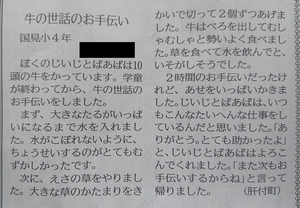 牛の世話のお手伝い
国見小４年
ぼくのじいじとばあばは10
頭の牛をかっています。学童
が終わってから、牛の世話の
お手伝いをしました。
まず、大きなたるがいっぱ
いになるまで水を入れまし
た。水がこぼれないように、
ちょうせいするのがとてもむ
ずかしかったです。
次に、えさの草をやりまし
た。大きな草のかたまりをき
かいで切って２個ずつあげま
した。牛はべろを出してむし
ゃむしゃと勢いよく食べまし
た。草を食べて水を飲んでと、
いそがしそうでした。
２時間のお手伝いだったけ
れど、あせをいっぱいかきま
した。じいじとばあばは、いつ
もこんなたいへんな仕事をし
ているんだと思いました。「あ
りがとう。とても助かったよ」
と、じいじとばあばはよろこ
んでくれました。「また次もお
手伝いするからね」と言って
帰りました。（肝付町）